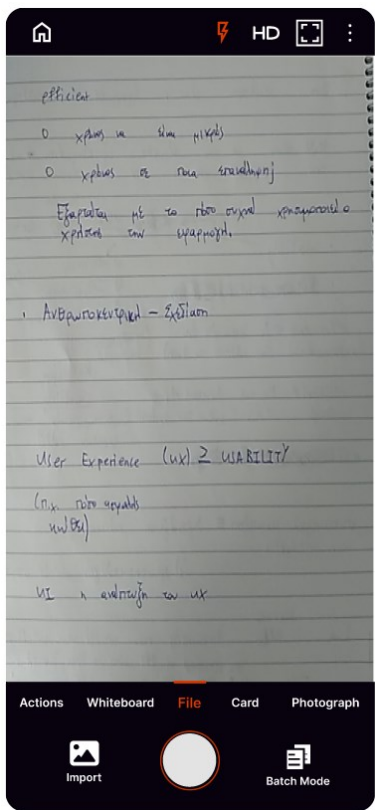 HD
efficient
Ο χρόνος να είναι μικρός
Ο χρόνος σε ποια επανάληψη;
Εξαρτάται με το πόσο συχνά χρησιμοποιεί ο
χρήστης την εφαρμογή.
Ανθρωποκεντρική - Σχεδίαση
User Experience (UX) ≥ USABILITY
(π.χ. πόσο
UI η ανάπτυξη του UX
Actions Whiteboard File Card Photograph
Import
Batch Mode